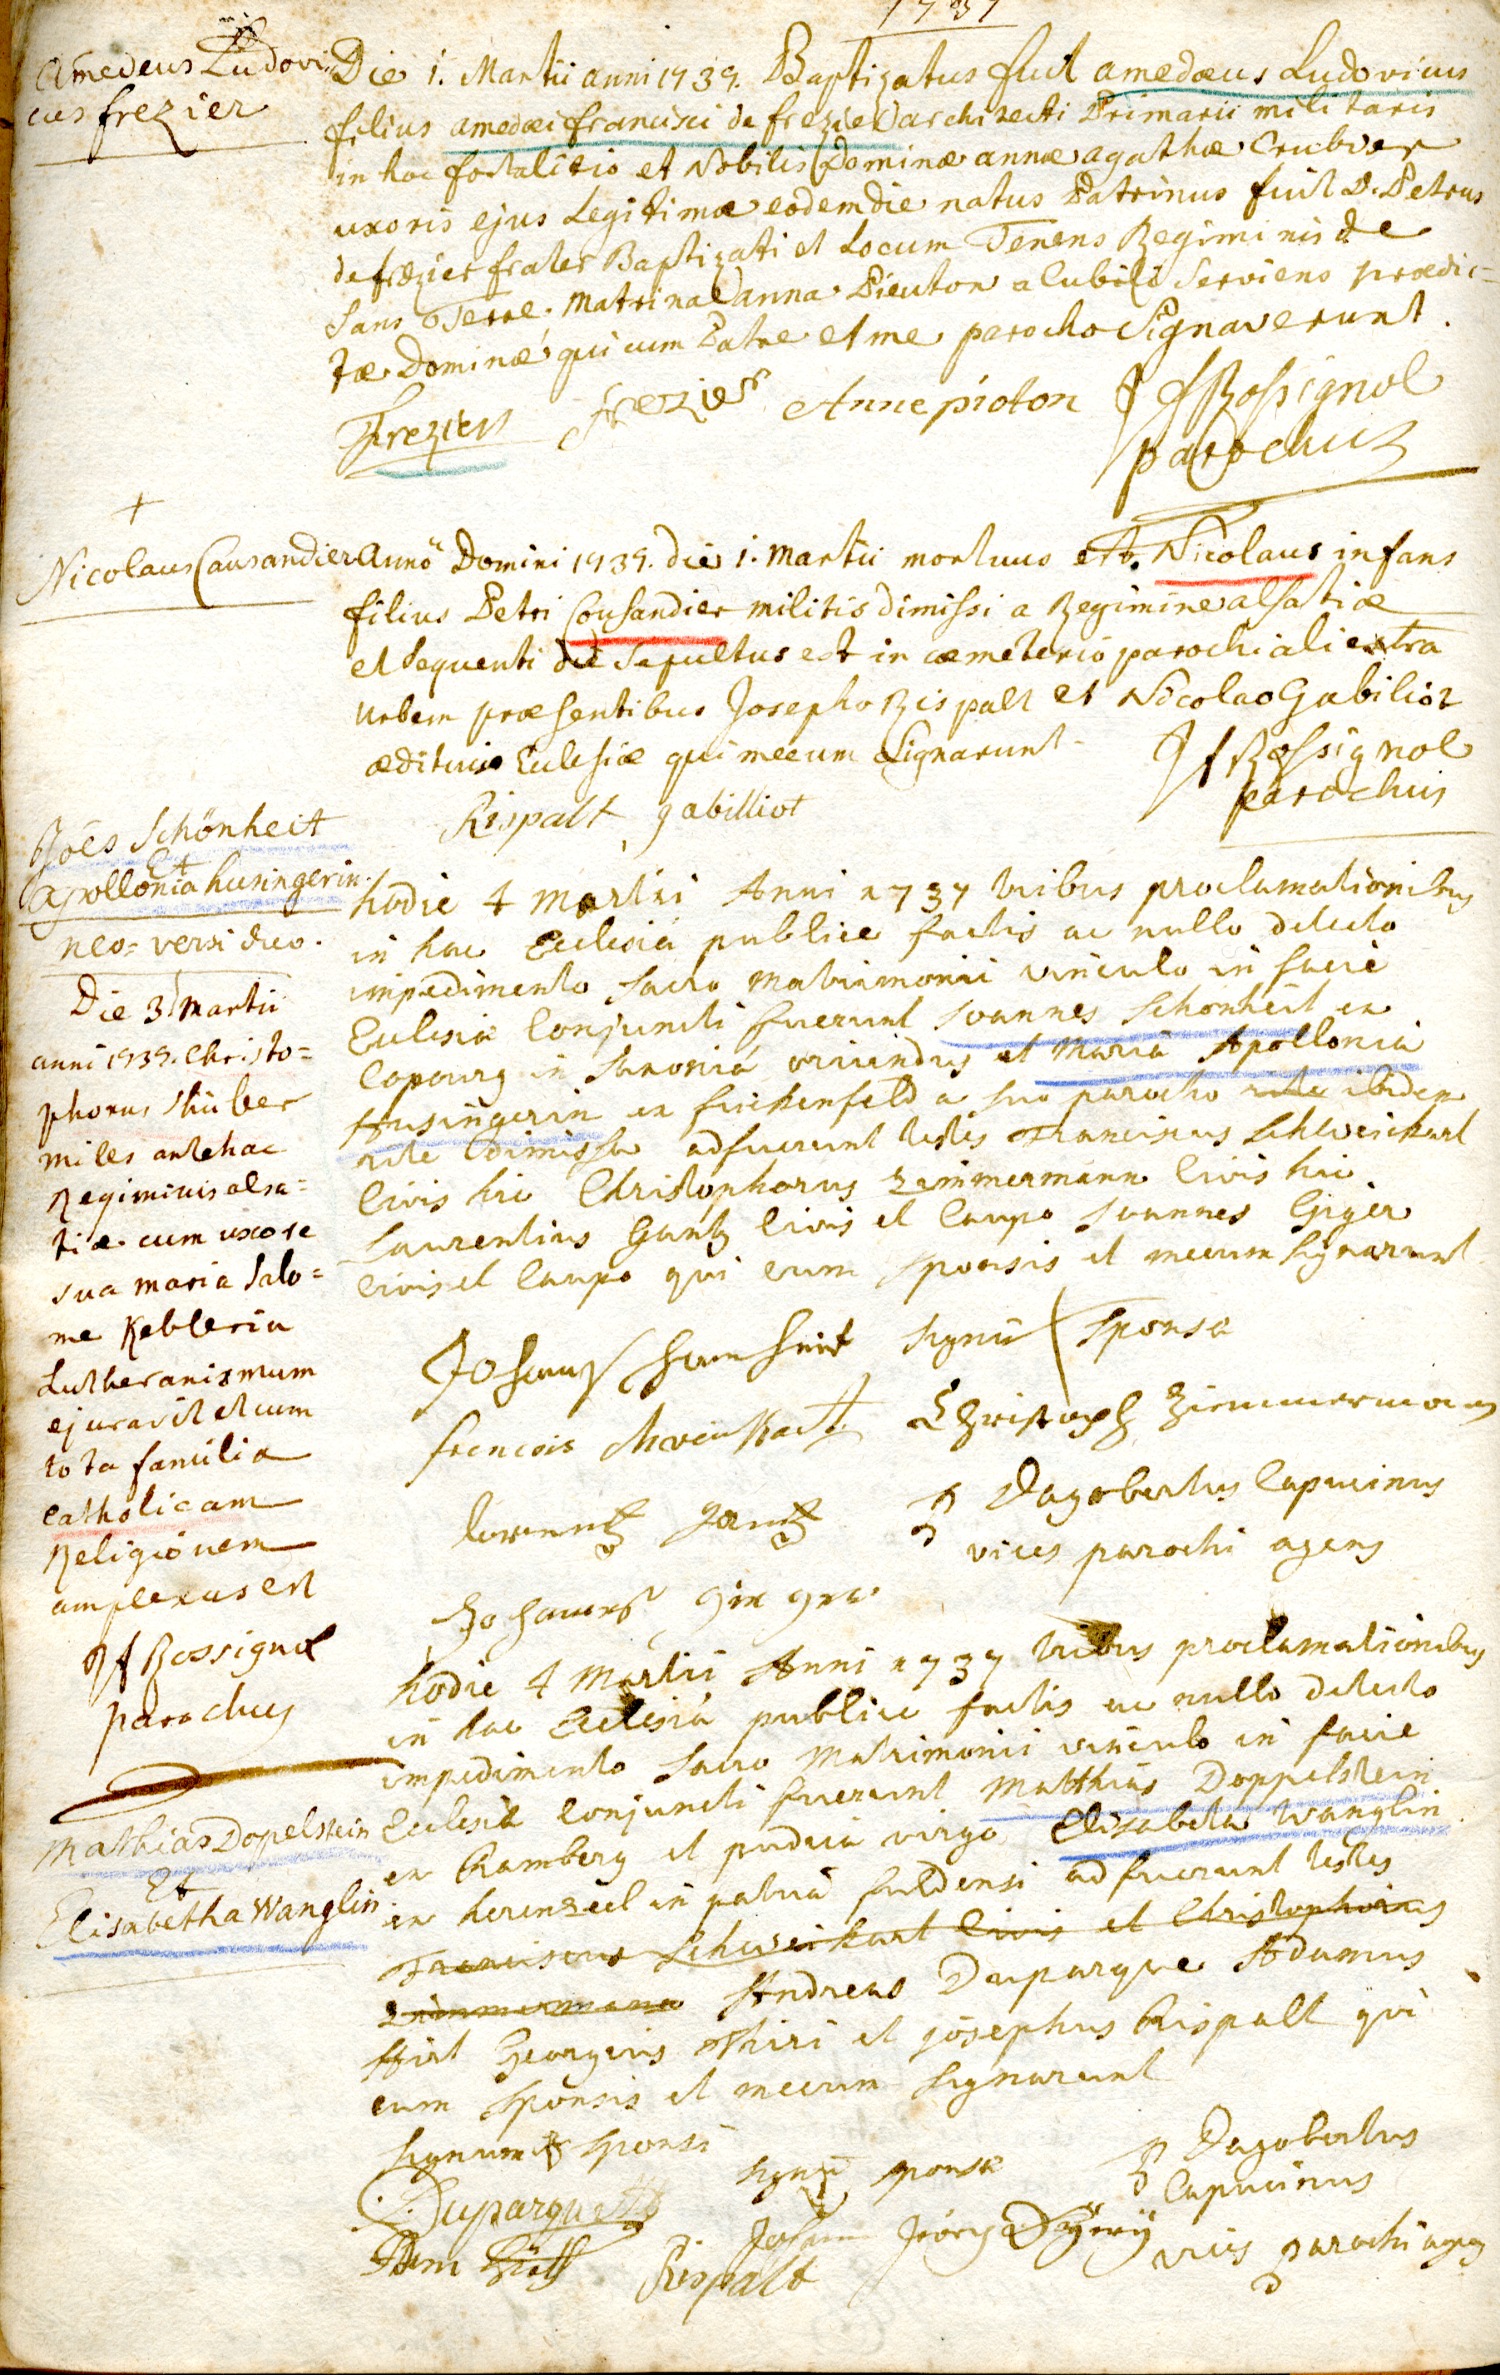 1737
Amedeus Ludovi:
cus frezier
Die 1. Martii anni 1737. Baptizatus fuit amedæus Ludovicus
filius amedæi francisci de frezier architecti Primarii militaris
in hoc fortalitio et Nobilis Dominæ annæ agathæ Crubier
uxoris ejus Legitimæ eodem die natus Patrinus fuit D. Petrus
de frezier frater Baptizati et Locum Tenens Regiminis de
Sans Terre. Matrina anna Picuton a Cubili Serviens prædic=
tæ Dominæ qui cum Patre et me parocho Signaverunt.
Frezier frezier Anne pioton J f Rossignol
parochus
+
Nicolaus Causandier
Anno Domini 1737. die 1. Martii mortuus est Nicolaus infans
filius Petri Cousandier militis dimissi a Regimine alsatiæ
et sequenti die Sepultus est in cæmeterio parochiali extra
urbem præsentibus Josepho Rispalt et Nicolao Gabiliot
ædituis Eclesiæ qui mecum Signarunt
J f Rossignol
parochus
Rispalt gabilliot
Joës Schönheit
Et
apollonia husingerin.
hodie 4 Martii Anni 1737 tribus proclamationibus
in hac Eclesia publice factis ac nullo detecto
impedimento sacro matrimonii vinculo in facie
Eclesiæ Conjuncti fuerunt Joannes Schonheit ex
Copourg in Saxoniá oriundus et Maria Apollonia
Husingerin ex frickenfeld a suo parocho rite ibidem
rite Dimissa adfuerunt testes Franciscus Schweickart
Civis hic Christophorus zimmermann Civis hic
Laurentius Gantz Civis et Caupo Joannes Giger
Civis et Caupo qui cum sponsis et mecum signarunt
signū sponsæ
francois
Christoph Zimmermann
Lorenntz gantz
P Dagobertus Capucinus
vices parochi agens
neo-versi duo.
Die 3 Martii
anni 1737. Christo=
phorus Stüber
miles antehac
Regiminis alsa=
tiæ cum uxore
sua maria Salo=
me Kebleria
Lutheranismum
ejuravit et cum
tota familia
catholicam
Religionem
amplexus est
J f Rossignol
parochus
Mathias Dopelstein
Et
Elisabetha Wanglin
hodie 4 Martii Anni 1737 tribus proclamationibus
in hac Eclesiá publice factis ac nullo detecto
impedimento sacro Matrimonii vinculo in facie
Eclesiæ Conjuncti fuerunt Matthias Doppelstein
ex Ramberg et pudica virgo Elisabeta Wanglin
ex in patriá fuldensi adfuerunt testes
Franciscus Schweickart Civis et Christophorus
zimmermann Andreas Duparque Adamus
Hirt Georgius Thiri et josephus Rispalt qui
cum sponsis et mecum signarunt
signum sponsi
signū sponsæ
P Dagobertus
Capucinus
vices parochi agens
Duparquet
Johann
Rispalt